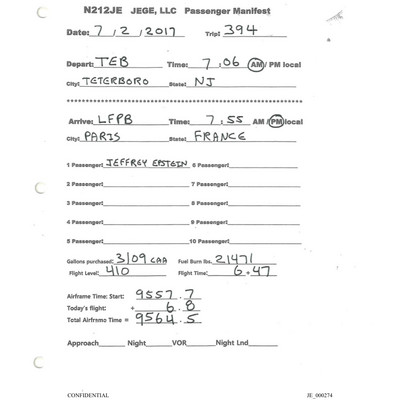 N212JE JEGE, LLC Passenger Manifest
Date: 7 / 2 / 2017 Trip: 394
Depart: TEB Time: 7 : 06 AM / PM local
City: TETERBORO State: NJ
Arrive: LFPB Time: 7 : 55 AM / PM local
City: PARIS State: FRANCE
1 Passenger: JEFFREY EPSTEIN 6 Passenger:
2 Passenger: 7 Passenger:
3 Passenger: 8 Passenger:
4 Passenger: 9 Passenger:
5 Passenger: 10 Passenger:
Gallons purchased: 3109 CAA Fuel Burn lbs. 21471
Flight Level: 410 Flight Time: 6 + 47
Airframe Time: Start: 9557.7
Today's flight: + 6.8
Total Airframe Time = 9564.5
Approach Night VOR Night Lnd
CONFIDENTIAL JE_000274